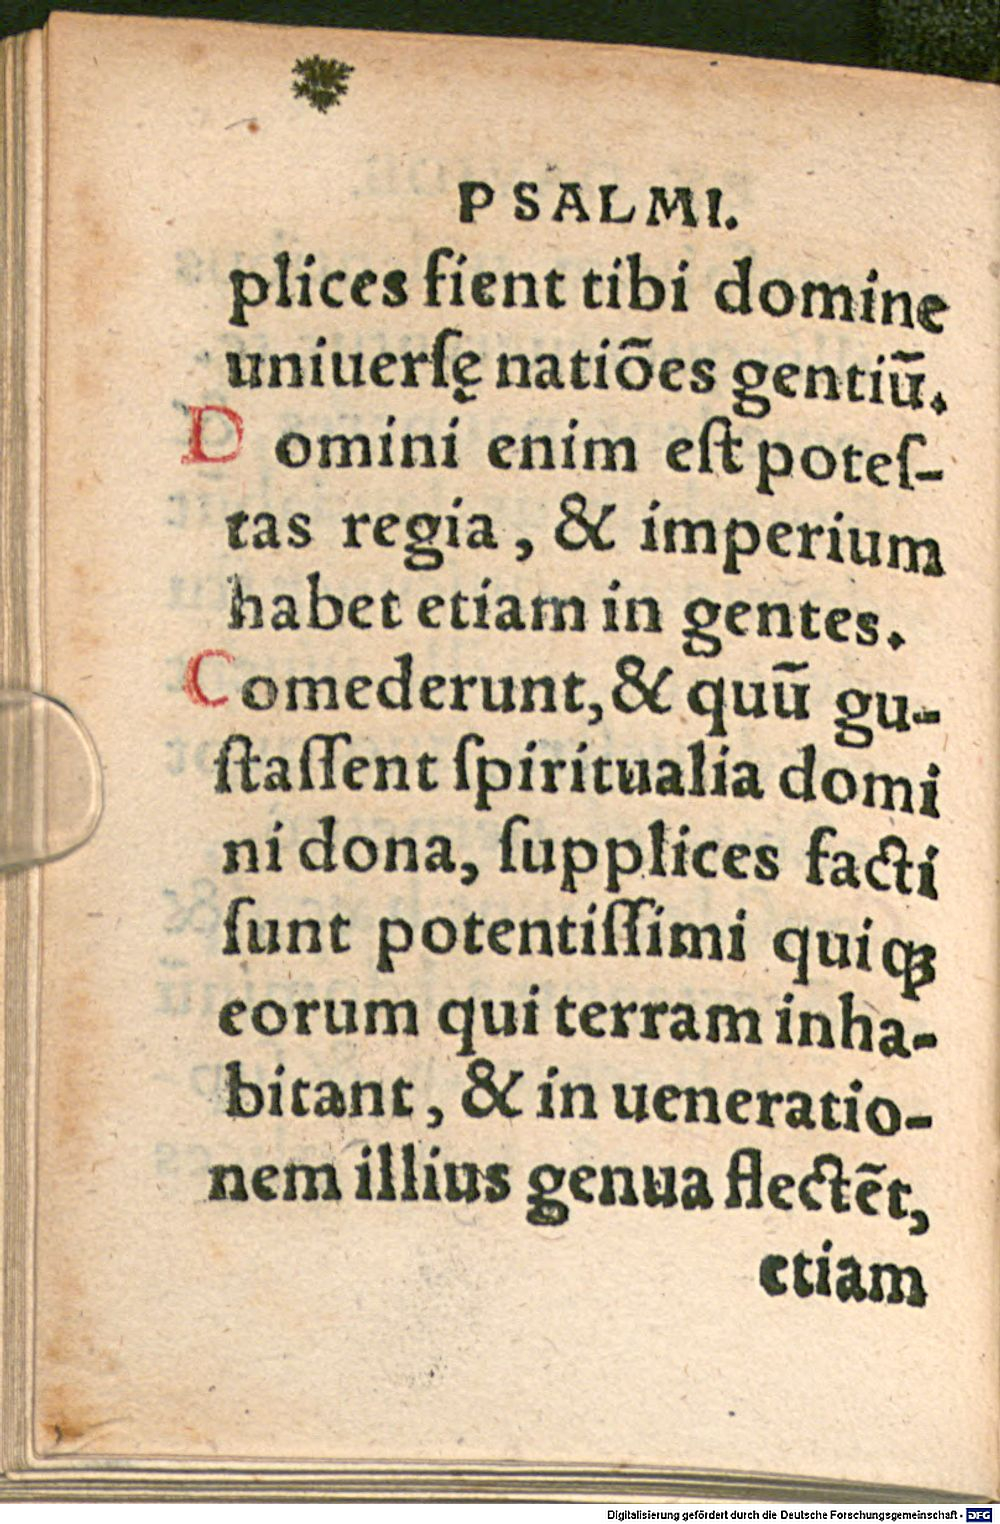 PSALMI.
plices fient tibi domine
uniuerſę natiões gentiū.
Domini enim eſt poteſ-
tas regia, & imperium
habet etiam in gentes.
Comederunt, & quū gu-
ſtaſſent ſpiritualia domi
ni dona, ſupplices facti
ſunt potentiſſimi quiqꝫ
eorum qui terram inha-
bitant, & in ueneratio-
nem illius genua flectēt,
etiam
Digitalisierung gefördert durch die Deutsche Forschungsgemeinschaft - DFG